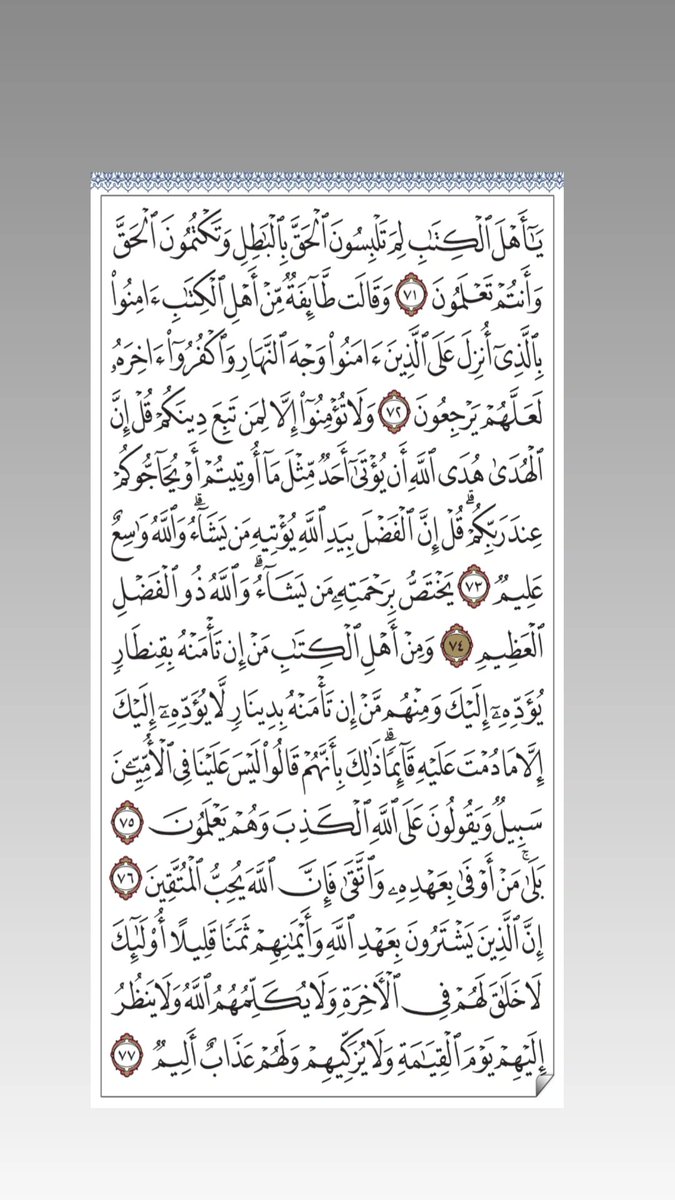 يَـٰٓأَهۡلَ ٱلۡكِتَـٰبِ لِمَ تَلۡبِسُونَ ٱلۡحَقَّ بِٱلۡبَـٰطِلِ وَتَكۡتُمُونَ ٱلۡحَقَّ
وَأَنتُمۡ تَعۡلَمُونَ ٧١ وَقَالَت طَّآئِفَةٞ مِّنۡ أَهۡلِ ٱلۡكِتَـٰبِ ءَامِنُواْ
بِٱلَّذِيٓ أُنزِلَ عَلَى ٱلَّذِينَ ءَامَنُواْ وَجۡهَ ٱلنَّهَارِ وَٱكۡفُرُوٓاْ ءَاخِرَهُۥ
لَعَلَّهُمۡ يَرۡجِعُونَ ٧٢ وَلَا تُؤۡمِنُوٓاْ إِلَّا لِمَن تَبِعَ دِينَكُمۡ قُلۡ إِنَّ
ٱلۡهُدَىٰ هُدَى ٱللَّهِ أَن يُؤۡتَىٰٓ أَحَدٞ مِّثۡلَ مَآ أُوتِيتُمۡ أَوۡ يُحَآجُّوكُمۡ
عِندَ رَبِّكُمۡۗ قُلۡ إِنَّ ٱلۡفَضۡلَ بِيَدِ ٱللَّهِ يُؤۡتِيهِ مَن يَشَآءُۗ وَٱللَّهُ وَٰسِعٌ
عَلِيمٞ ٧٣ يَخۡتَصُّ بِرَحۡمَتِهِۦ مَن يَشَآءُۗ وَٱللَّهُ ذُو ٱلۡفَضۡلِ
ٱلۡعَظِيمِ ٧٤ وَمِنۡ أَهۡلِ ٱلۡكِتَـٰبِ مَنۡ إِن تَأۡمَنۡهُ بِقِنطَارٖ
يُؤَدِّهِۦٓ إِلَيۡكَ وَمِنۡهُم مَّنۡ إِن تَأۡمَنۡهُ بِدِينَارٖ لَّا يُؤَدِّهِۦٓ إِلَيۡكَ
إِلَّا مَا دُمۡتَ عَلَيۡهِ قَآئِمٗاۗ ذَٰلِكَ بِأَنَّهُمۡ قَالُواْ لَيۡسَ عَلَيۡنَا فِي ٱلۡأُمِّيِّـۧنَ
سَبِيلٞ وَيَقُولُونَ عَلَى ٱللَّهِ ٱلۡكَذِبَ وَهُمۡ يَعۡلَمُونَ ٧٥
بَلَىٰۚ مَنۡ أَوۡفَىٰ بِعَهۡدِهِۦ وَٱتَّقَىٰ فَإِنَّ ٱللَّهَ يُحِبُّ ٱلۡمُتَّقِينَ ٧٦
إِنَّ ٱلَّذِينَ يَشۡتَرُونَ بِعَهۡدِ ٱللَّهِ وَأَيۡمَـٰنِهِمۡ ثَمَنٗا قَلِيلًا أُوْلَـٰٓئِكَ
لَا خَلَـٰقَ لَهُمۡ فِي ٱلۡأٓخِرَةِ وَلَا يُكَلِّمُهُمُ ٱللَّهُ وَلَا يَنظُرُ
إِلَيۡهِمۡ يَوۡمَ ٱلۡقِيَـٰمَةِ وَلَا يُزَكِّيهِمۡ وَلَهُمۡ عَذَابٌ أَلِيمٞ ٧٧